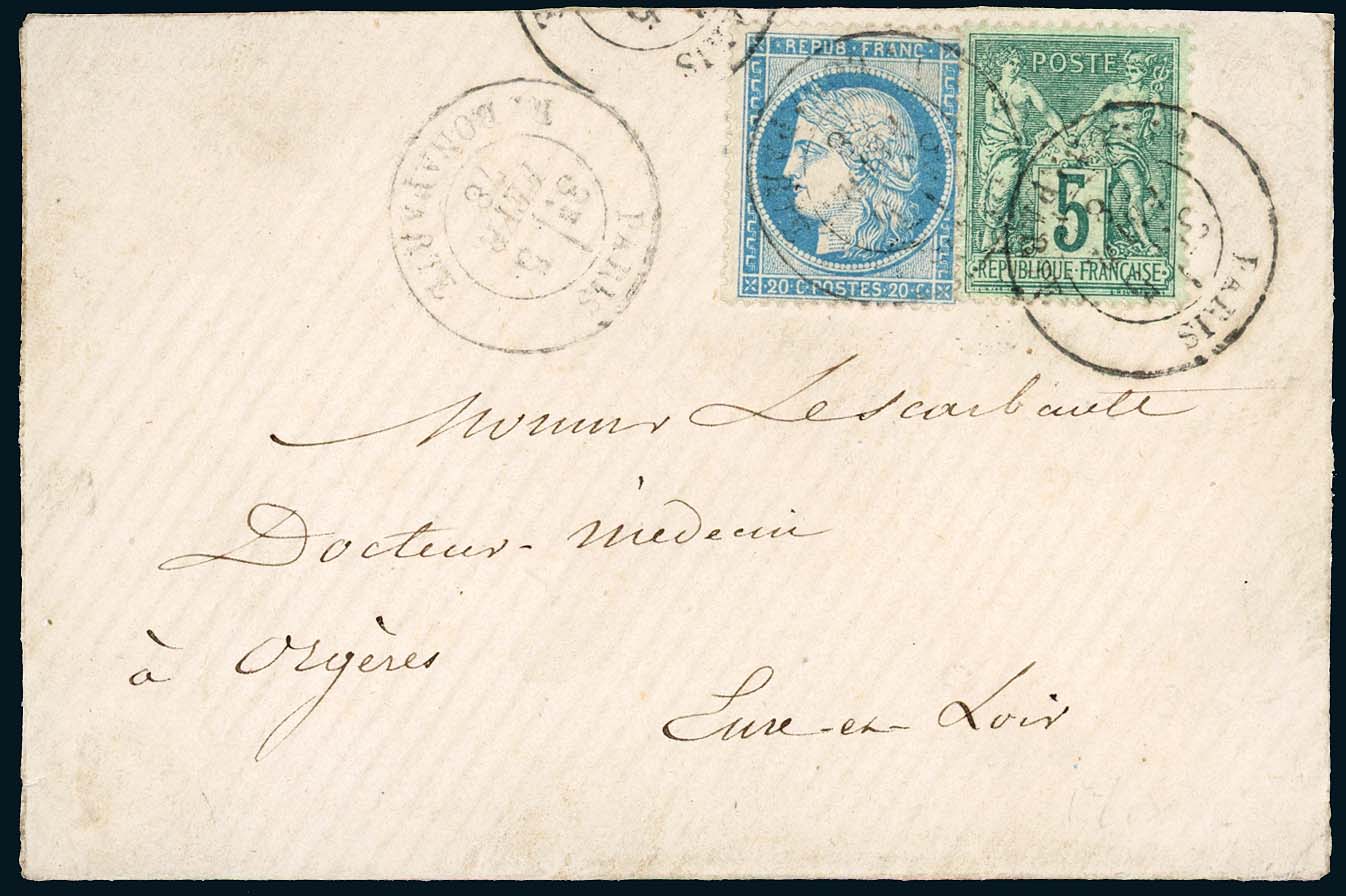 REPUB · FRANC
20 · C · POSTES · 20 · C
POSTE
5
RÉPUBLIQUE · FRANÇAISE
PARIS
PARIS
R. BONAPARTE
3E
5
78
PARIS
Monsieur Lescarbault
Docteur-médecin
à Orgères
Eure-et-Loir